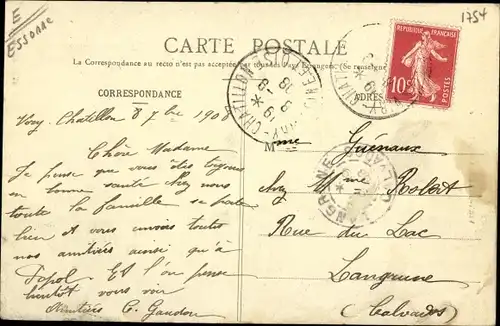 E
ESSONNE
1754
CARTE POSTALE
La Correspondance au recto n'est pas acceptée par tous les Pays Etrangers. (Se renseigner
CORRESPONDANCE
ADRES
REPUBLIQUE FRANÇAISE
10c
POSTES
CHATILLON
LANGRUNE
Viry Chatillon 8 7bre 190
Chère Madame
Je pense que vous êtes toujours
en bonne santé chez nous
toute la famille se porte
bien et vous envoie nos
amitiés ainsi qu'à
Popol Et l'on pense
bientôt vous voir
Amitiés C. Gaudon
Mme Guénaux
chez Mme Robert
Rue du Lac
Langrune
(Calvados)